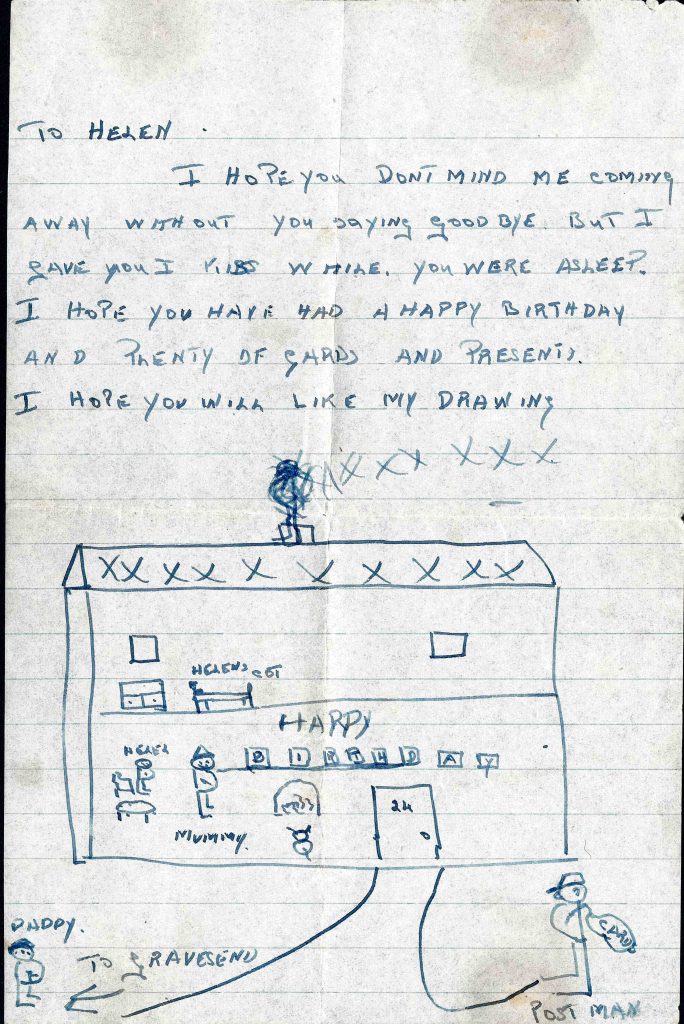 TO HELEN .
I HOPE YOU DONT MIND ME COMING
AWAY WITHOUT YOU SAYING GOODBYE. BUT I
GAVE YOU I KISS WHILE. YOU WERE ASLEEP.
I HOPE YOU HAVE HAD A HAPPY BIRTHDAY
AND PLENTY OF CARDS AND PRESENTS.
I HOPE YOU WILL LIKE MY DRAWING
X X X X X X X
XX XX X X X X XX
HELENS COT
HAPPY
HELEN
BIRTHDAY
24
MUMMY.
DADDY.
CARDS
TO GRAVESEND
POST MAN